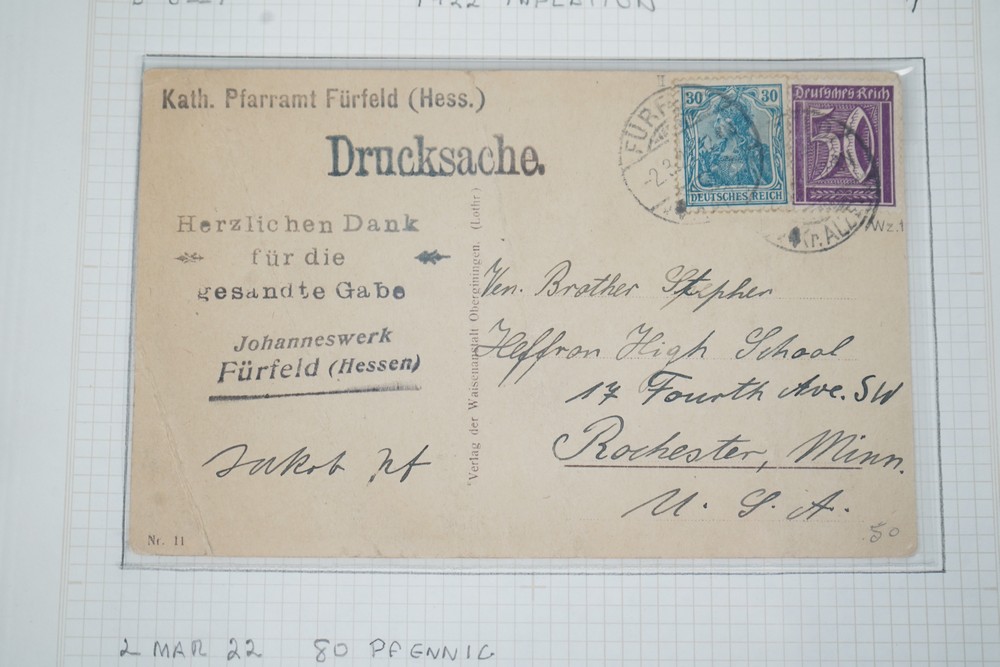 1922 INFLATION
Kath. Pfarramt Fürfeld (Hess.)
Drucksache.
Herzlichen Dank
für die
gesandte Gabe
Johanneswerk
Fürfeld (Hessen)
Jakob
Nr. 11
Verlag der Waisenanstalt Oberginingen. (Lothr.)
30 30
DEUTSCHES REICH
Deutsches Reich
50
Wz.1
Ven. Brother Stepher
Heffron High School
17 Fourth Ave. SW
Rochester, Minn.
U. S. A.
50
2 MAR 22 80 PFENNIG